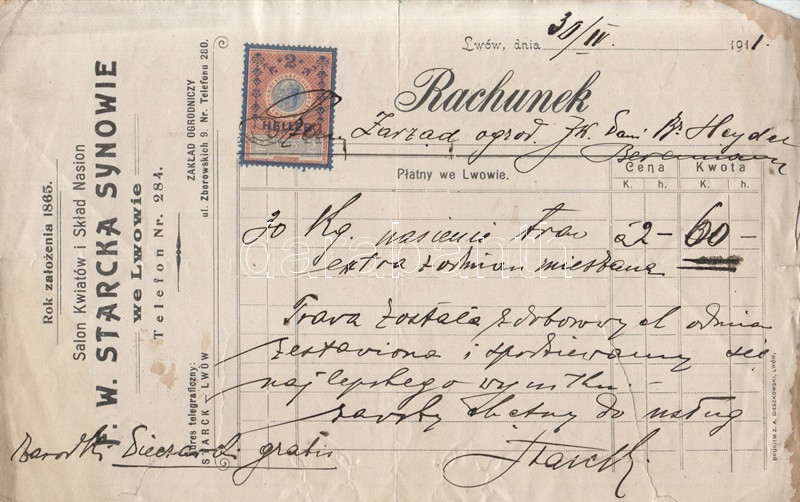 Rok założenia 1865.
Salon Kwiatów i Skład Nasion
F. W. STARCKA SYNOWIE
we Lwowie
Telefon Nr. 284.
ZAKŁAD OGRODNICZY
ul. Zborowskich 9. Nr. Telefonu 280.
Adres telegraficzny:
STARCK – LWÓW
Lwów, dnia 30/IV. 1911.
2
HELLER
Rachunek
Zarząd ogrod. JW. Pani Br. Heydel
Płatny we Lwowie.
Cena Kwota
K. h. K. h.
30 Kg. nasienie traw à 2 – 60 –
extra 4 odmian mieszana
Trawa została z doborowych odmian
zestawiona i spodziewamy się
najlepszego wyniku. –
zawsze chętny do usług
gratis
Starck
DRUKIEM Z. A. CIESZKOWSKI, LWÓW.
darabanth